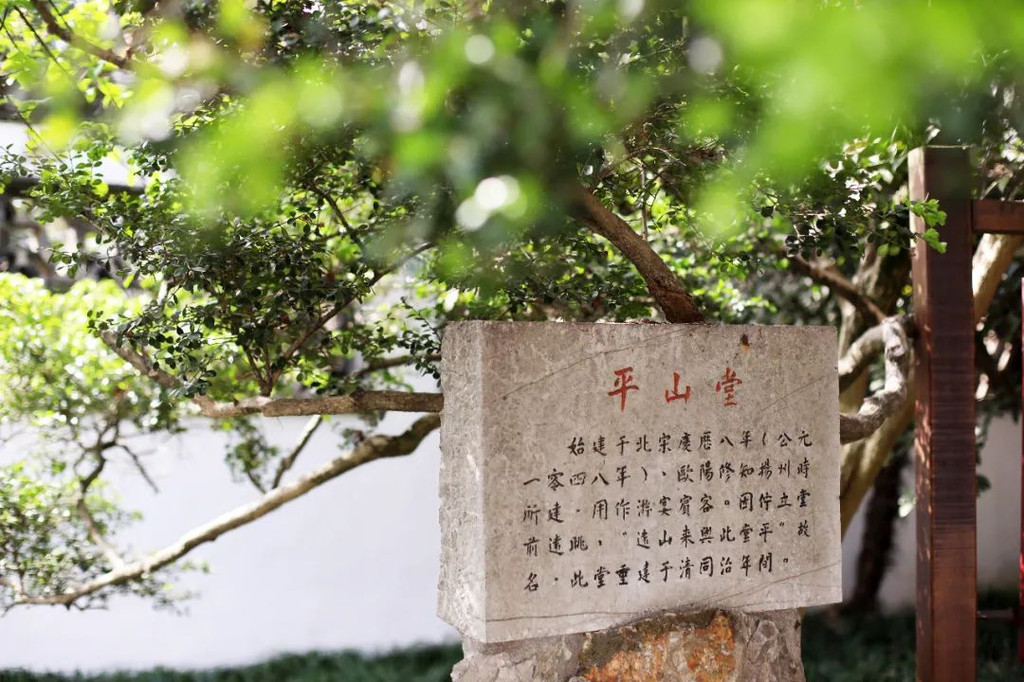 平山堂
始建于北宋慶厯八年(公元
一零四八年)、歐陽修知揚州時
所建。用作游宴賓客。因佇立堂
前遠眺，“遠山來與此堂平”故
名。此堂重建于清同治年間。